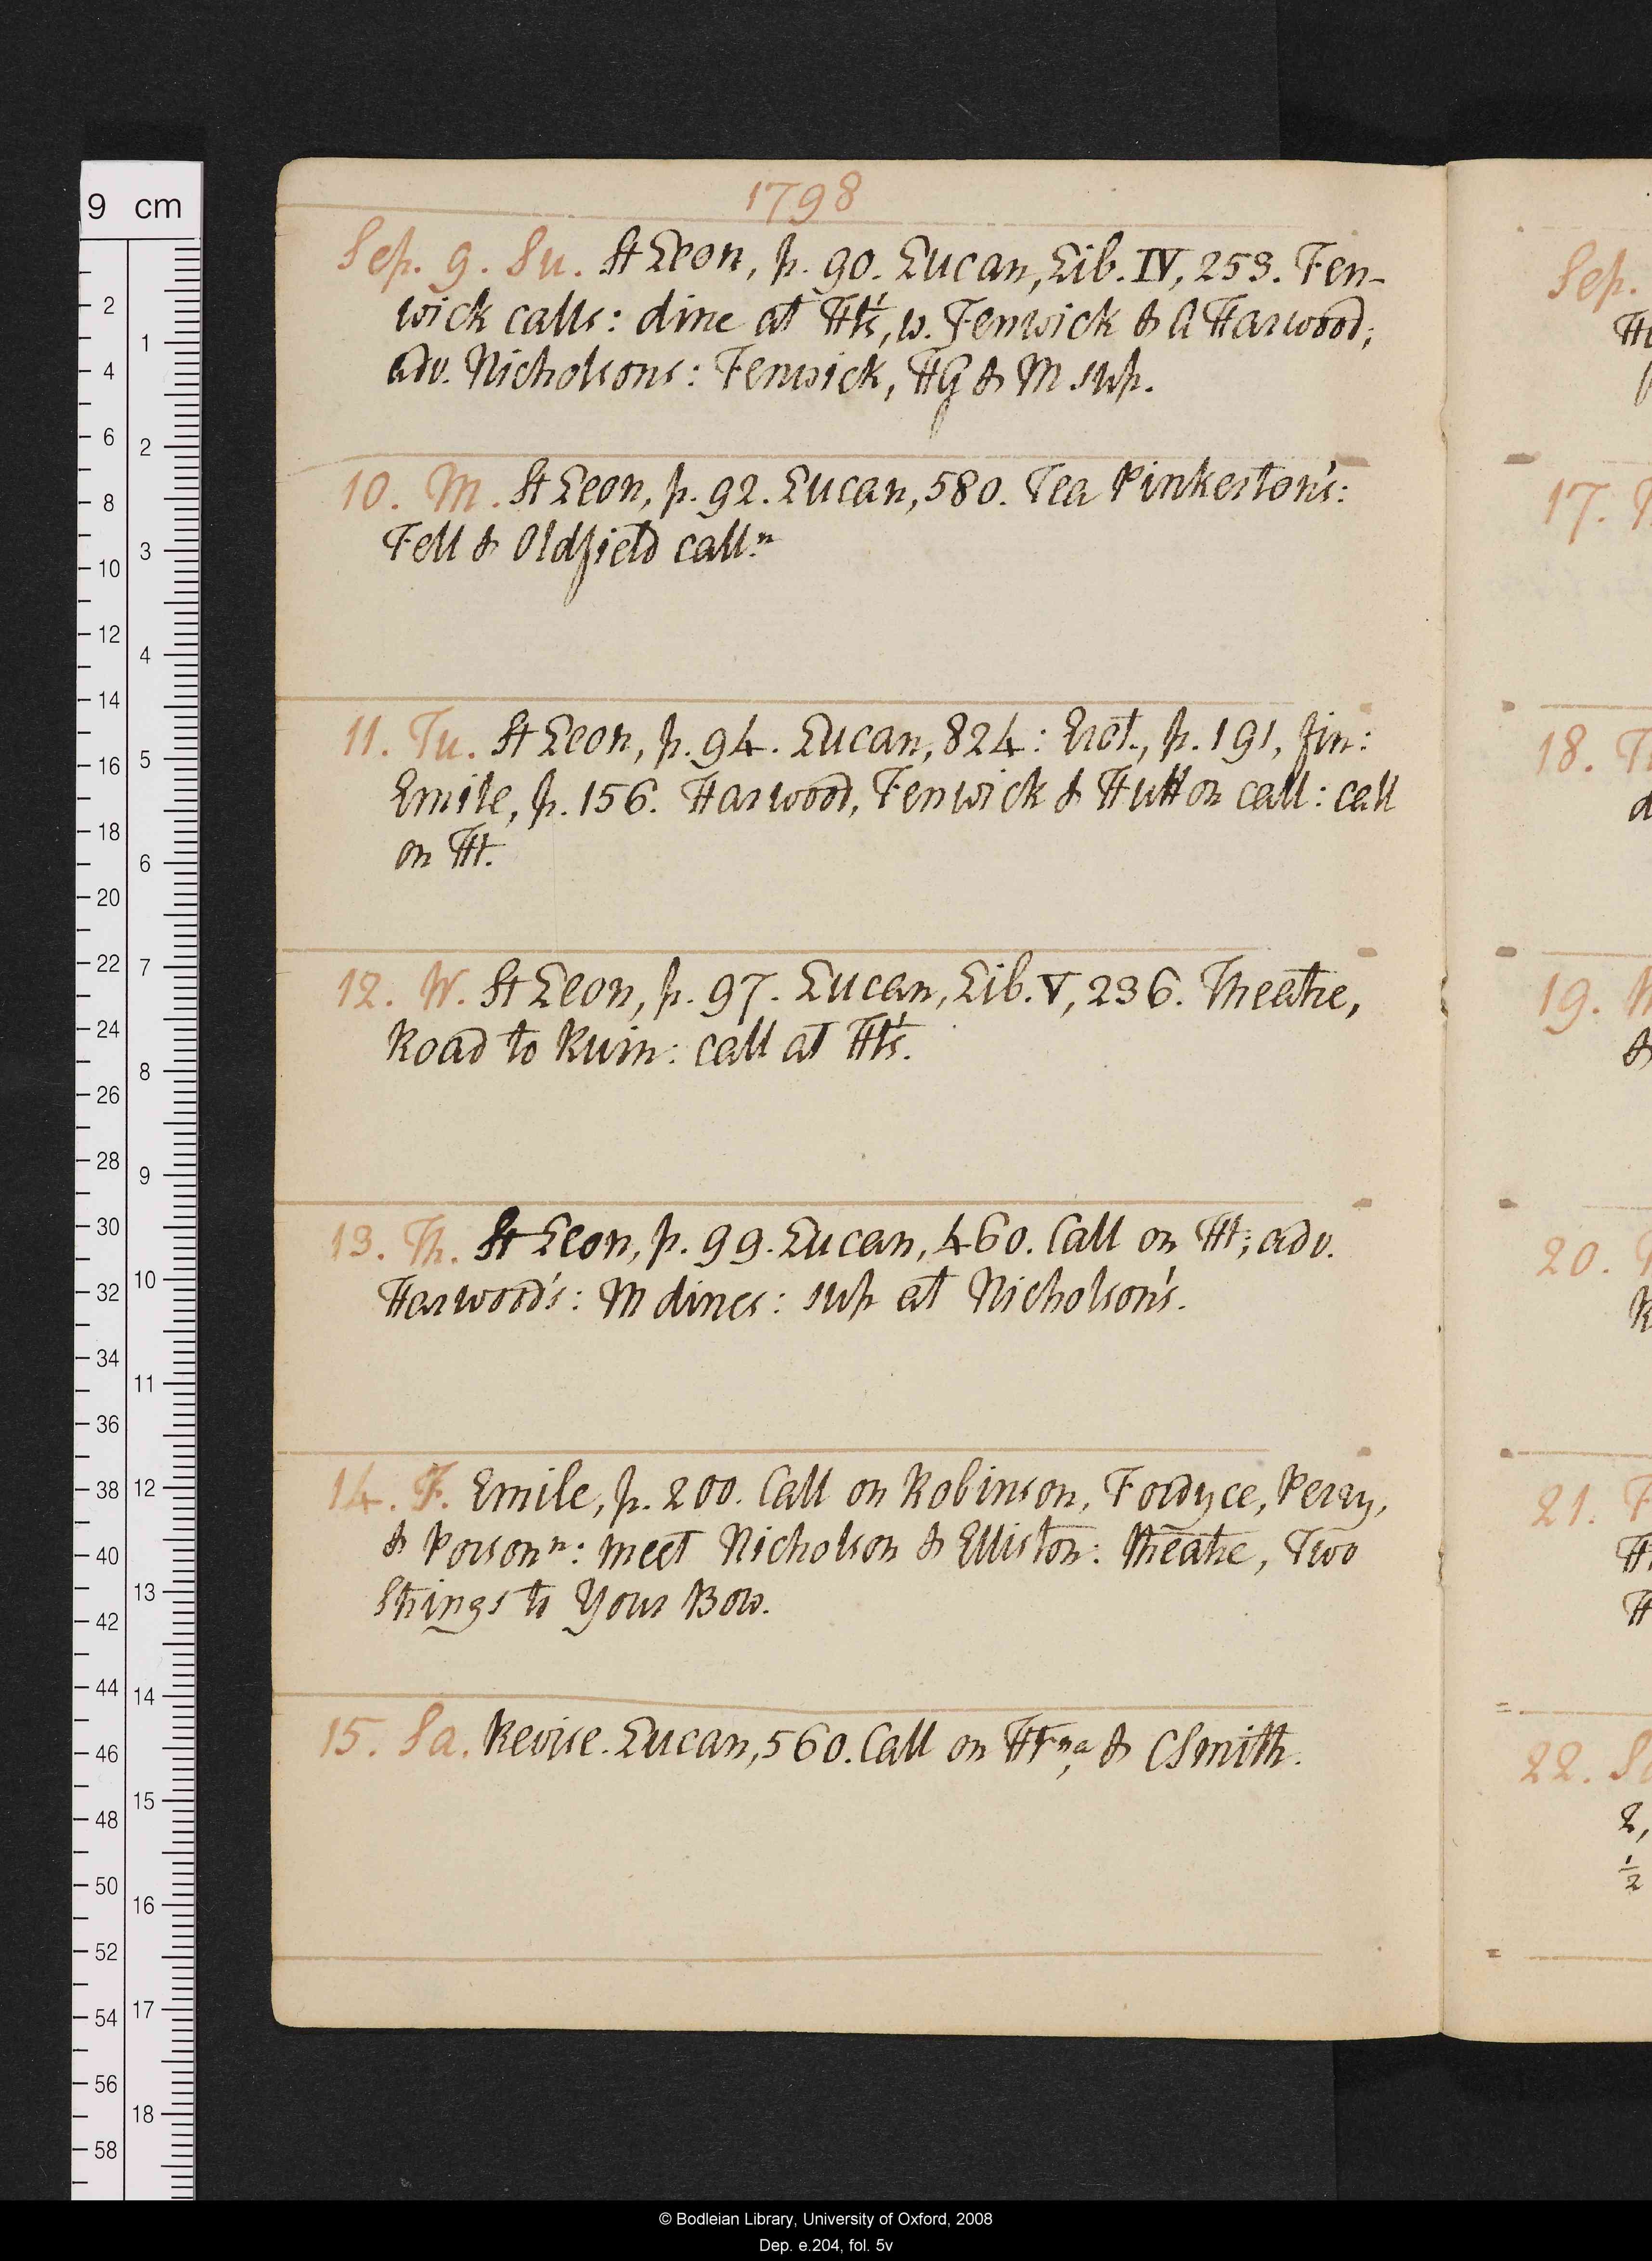 1798
Sep. 9. Su. St Leon, p. 90. Lucan, Lib. IV, 253. Fen-
wick calls: dine at Ht's, w. Fenwick & A Harwood;
adv. Nicholsons: Fenwick, HG & M sup.
10. M. St Leon, p. 92. Lucan, 580. Tea Pinkerton's:
Fell & Oldfield call.n
11. Tu. St Leon, p. 94. Lucan, 824: p. 191, fin:
Emile, p. 156. Harwood, Fenwick & Hutton call: call
on Ht.
12. W. St Leon, p. 97. Lucan, Lib. V, 236. Theatre,
Road to Ruin: call at Ht's.
13. Th. St Leon, p. 99. Lucan, 460. Call on Ht; adv.
Harwood's: M dines: sup at Nicholson's.
14. F. Emile, p. 200. Call on Robinson, Fordyce, Perry,
& Porson n: meet Nicholson & Elliston: theatre, Two
Strings to Your Bow.
15. Sa. Revise. Lucan, 560. Call on Ht na, & CSmith.
Sep.
17.
18.
19.
&
20.
21.
22.
2,
½
9 cm
2 4 6 8 10 12 14 16 18 20 22 24 26 28 30 32 34 36 38 40 42 44 46 48 50 52 54 56 58
1 2 3 4 5 6 7 8 9 10 11 12 13 14 15 16 17 18
© Bodleian Library, University of Oxford, 2008
Dep. e.204, fol. 5v